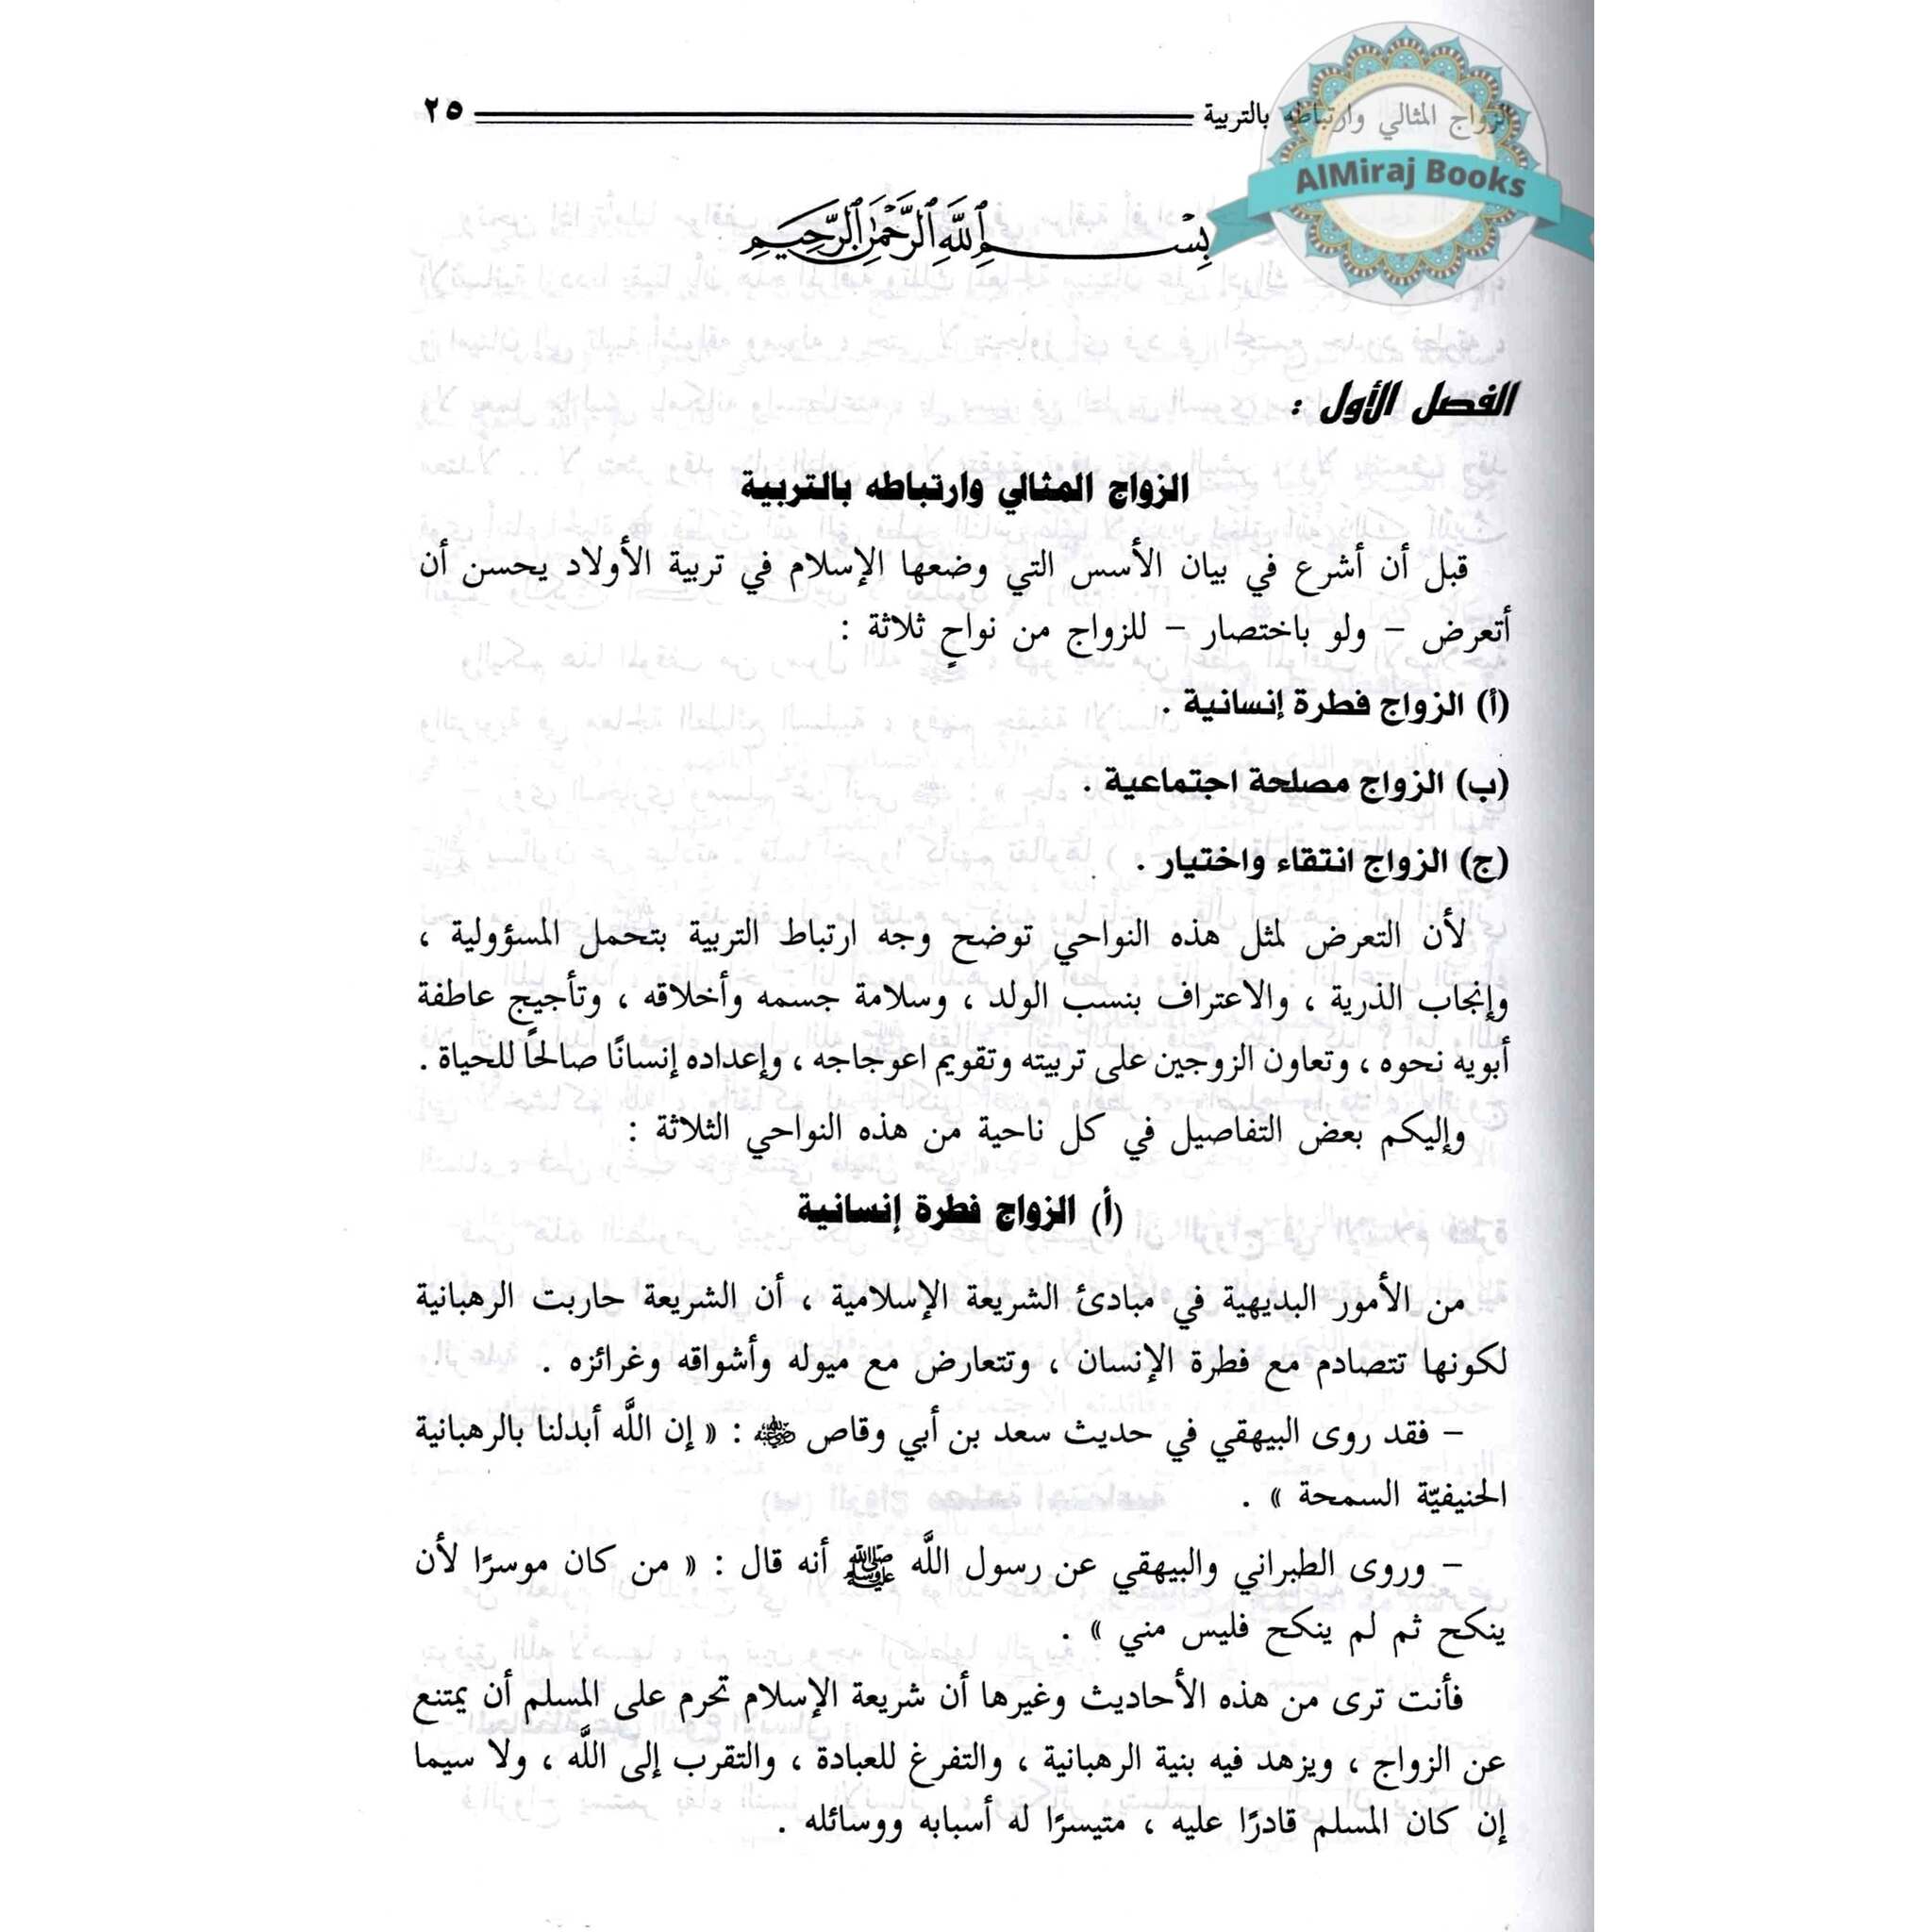 الزواج المثالي وارتباطه بالتربية ٢٥
AlMiraj Books
بسم الله الرحمن الرحيم
الفصل الأول :
الزواج المثالي وارتباطه بالتربية
قبل أن أشرع في بيان الأسس التي وضعها الإسلام في تربية الأولاد يحسن أن
أتعرض – ولو باختصار – للزواج من نواحٍ ثلاثة :
(أ) الزواج فطرة إنسانية .
(ب) الزواج مصلحة اجتماعية .
(ج) الزواج انتقاء واختيار .
لأن التعرض لمثل هذه النواحي توضح وجه ارتباط التربية بتحمل المسؤولية ،
وإنجاب الذرية ، والاعتراف بنسب الولد ، وسلامة جسمه وأخلاقه ، وتأجيج عاطفة
أبويه نحوه ، وتعاون الزوجين على تربيته وتقويم اعوجاجه ، وإعداده إنسانًا صالحًا للحياة .
وإليكم بعض التفاصيل في كل ناحية من هذه النواحي الثلاثة :
(أ) الزواج فطرة إنسانية
من الأمور البديهية في مبادئ الشريعة الإسلامية ، أن الشريعة حاربت الرهبانية
لكونها تتصادم مع فطرة الإنسان ، وتتعارض مع ميوله وأشواقه وغرائزه .
– فقد روى البيهقي في حديث سعد بن أبي وقاص رضي الله عنه : « إن اللَّه أبدلنا بالرهبانية
الحنيفيّة السمحة » .
– وروى الطبراني والبيهقي عن رسول اللَّه ﷺ أنه قال : « من كان موسرًا لأن
ينكح ثم لم ينكح فليس مني » .
فأنت ترى من هذه الأحاديث وغيرها أن شريعة الإسلام تحرم على المسلم أن يمتنع
عن الزواج ، ويزهد فيه بنية الرهبانية ، والتفرغ للعبادة ، والتقرب إلى اللَّه ، ولا سيما
إن كان المسلم قادرًا عليه ، متيسرًا له أسبابه ووسائله .